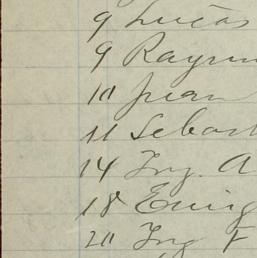 9 Lucas
9 Raym
10 Juan
11 Sebast
14 Ing. A
18 Enrig
20 Ing F